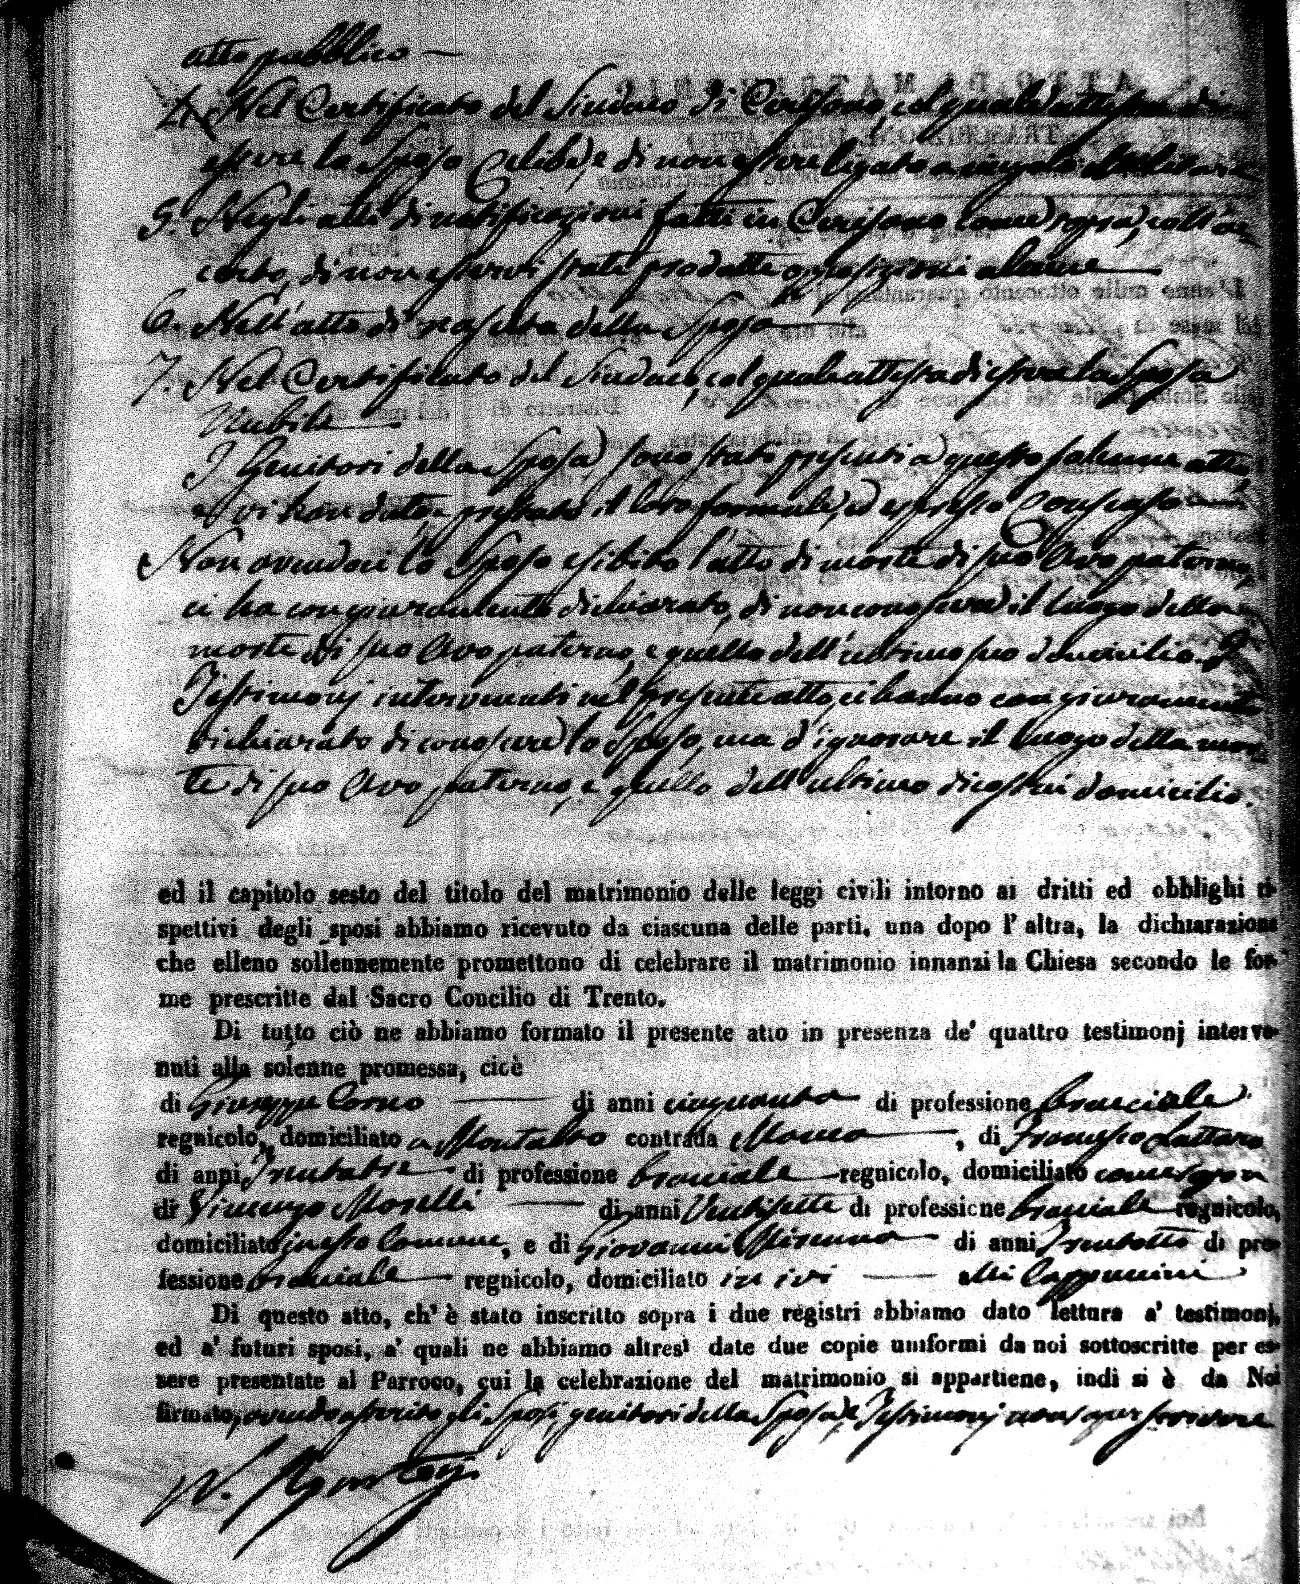 atto pubblico —
4. Nel Certificato del Sindaco di Cerisano, col quale attesta di
essere lo Sposo Celibe, e di non essere ligato a vincolo Militare
5. Negli atti di notificazioni fatti in Cerisano come sopra, coll'ac
certo, di non esservi state prodotte opposizioni alcune —
6. Nell'atto di nascita della Sposa —
7. Nel Certificato del Sindaco, col quale attesta di essere la Sposa
Nubile —
I Genitori della Sposa sono stati presenti a questo solenne atto,
e vi han dato, e prestato il loro formale, ed espresso Consenso —
Non avendoci lo Sposo esibito l'atto di morte di suo Avo paterno,
ci ha con giuramento dichiarato, di non conoscere il luogo della
morte di suo Avo paterno, e quello dell'ultimo suo domicilio. I
Testimonj intervenuti nel presente atto, ci hanno con giuramento
dichiarato di conoscere lo Sposo, ma d'ignorare il luogo della mor
te di suo Avo paterno, e quello dell'ultimo di costui domicilio.
ed il capitolo sesto del titolo del matrimonio delle leggi civili intorno ai dritti ed obblighi ri-
spettivi degli sposi abbiamo ricevuto da ciascuna delle parti, una dopo l'altra, la dichiarazione
che elleno sollennemente promettono di celebrare il matrimonio innanzi la Chiesa secondo le for-
me prescritte dal Sacro Concilio di Trento.
Di tutto ciò ne abbiamo formato il presente atto in presenza de' quattro testimonj interve-
nuti alla solenne promessa, cioè
di Giuseppe Corno — di anni cinquanta di professione bracciale
regnicolo, domiciliato a Montalto contrada Mauca —, di Francesco Lattaro
di anni Trentatre di professione bracciale regnicolo, domiciliato come sopra
di Vincenzo Morelli — di anni Ventisette di professione bracciale regnicolo,
domiciliato in questo Comune, e di Giovanni — di anni Trentotto di pro-
fessione bracciale — regnicolo, domiciliato in ivi — alli Cappuccini
Di questo atto, ch' è stato inscritto sopra i due registri abbiamo dato lettura a' testimonj,
ed a' futuri sposi, a' quali ne abbiamo altresì date due copie uniformi da noi sottoscritte per es-
sere presentate al Parroco, cui la celebrazione del matrimonio si appartiene, indi si è da Noi
firmato, avendo asserito gli Sposi, genitori della Sposa, e Testimonj non saper scrivere